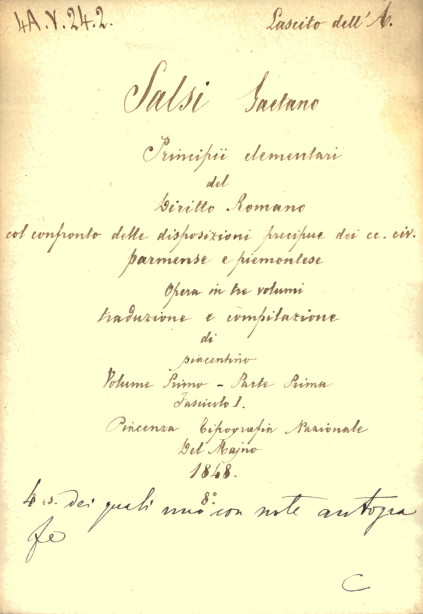 4A.V.24.2. Lascito dell'A.
Salsi Gaetano
Principii elementari
del
Diritto Romano
col confronto delle disposizioni precipue dei cc. civ.
parmense e piemontese
Opera in tre volumi
traduzione e compilazione
di
piacentino
Volume Primo - Parte Prima
Fascicolo I.
Piacenza Tipografia Nazionale
Del Majno
1848.
8.º
4 es. dei quali uno con note autogra
fe
C